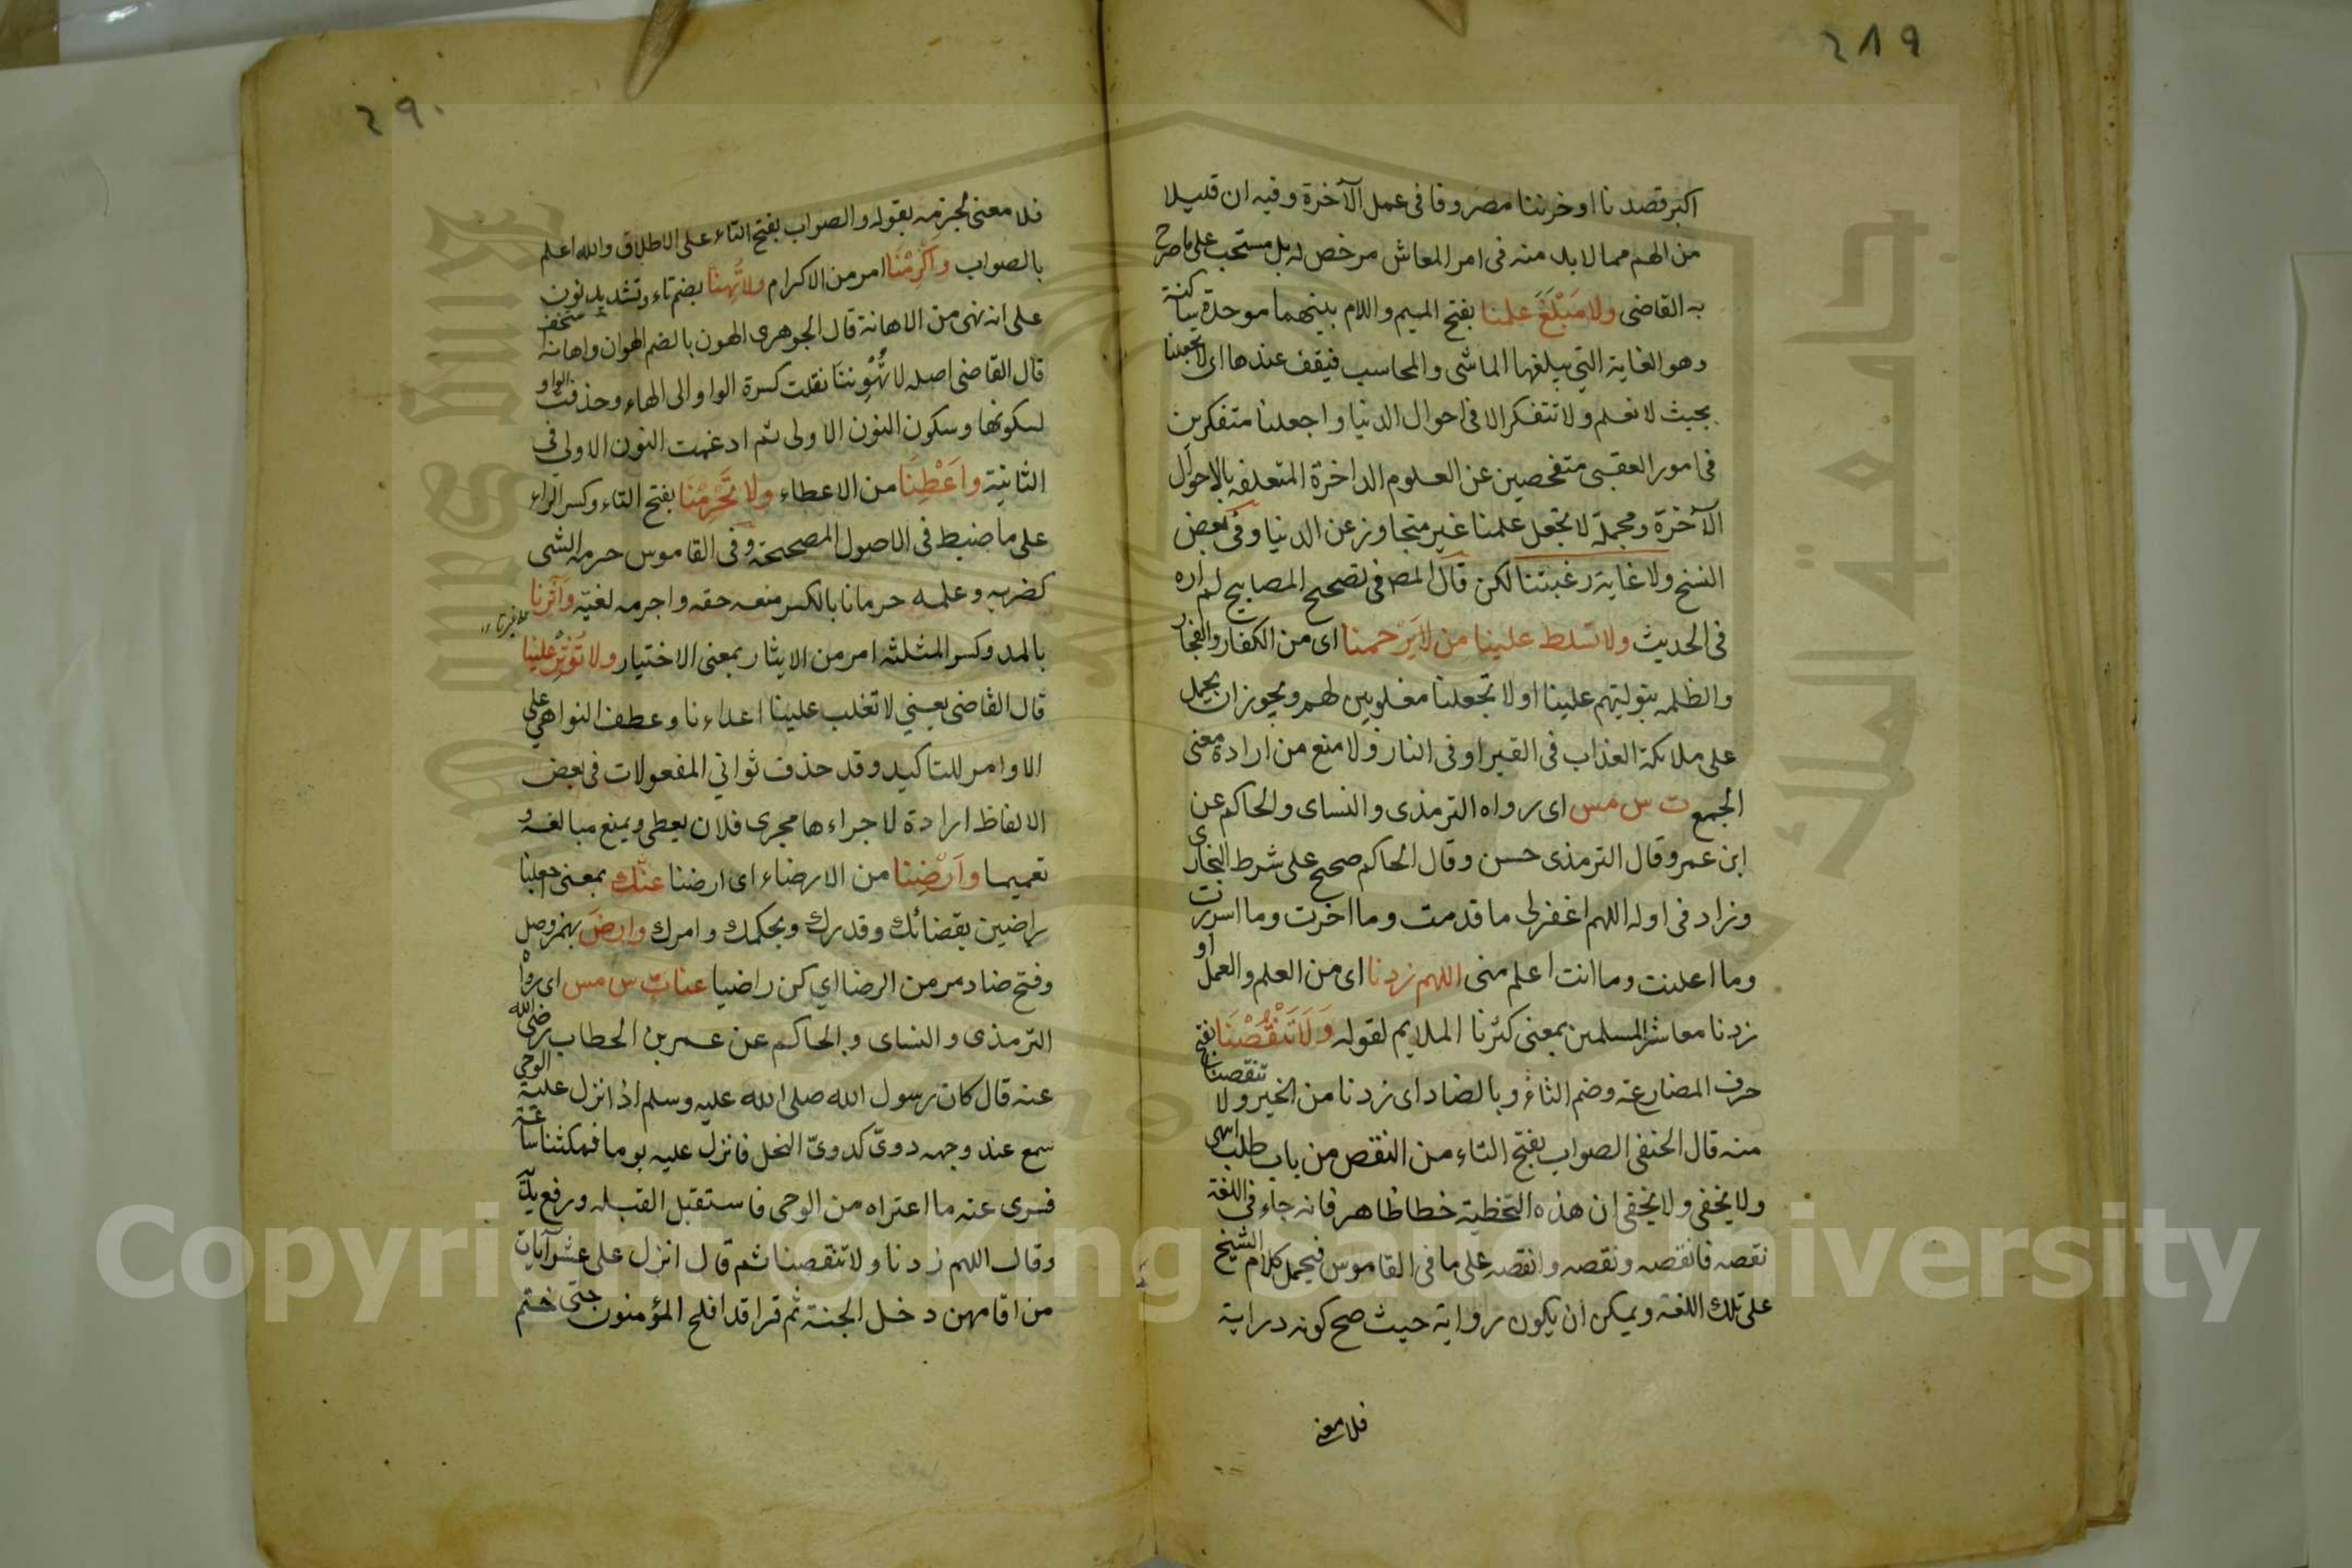 ٤٨٩
اكبر قصدنا او خزننا مصروفا فى عمل الآخرة وفيه ان قليلا
من الهم مما لا بد منه فى امر المعاش مرخص له بل مستحب على ما صرح
به القاضى ولا مَبْلَغَ علمنا بفتح الميم واللام بينهما موحدة ساكنة
وهو الغاية التي يبلغها الماشى والمحاسب فيقف عندها اى لا تجعلنا
بحيث لا نعلم ولا نتفكر الا فى احوال الدنيا واجعلنا متفكرين
فى امور العقبى متفحصين عن العلوم الداخرة المتعلقه بالاحوال
الآخرة ومجملة لا تجعل علمنا غير متجاوز عن الدنيا وفى بعض
النسخ ولا غاية رغبتنا لكن قال المص فى تصحيح المصابيح لم اره
فى الحديث ولا تسلط علينا من لا يَرْحمنا اى من الكفار والفجار
والظلمه بتوليتهم علينا او لا تجعلنا مغلوبين لهم ويجوز ان يحمل
على ملائكة العذاب فى القبر او فى النار ولا منع من ارادة معنى
الجمع ت س مس اى رواه الترمذى والنساى والحاكم عن
ابن عمر وقال الترمذى حسن وقال الحاكم صحيح على شرط البخارى
وزاد فى اوله اللهم اغفر لى ما قدمت وما اخرت وما اسررت
وما اعلنت وما انت اعلم منى اللهم زدنا اى من العلم والعمل او
زدنا معاشر المسلمين بمعنى كثرنا الملايم لقوله وَلَا تَنْقُصْنَا بفتح
حرف المضارعة وضم الثاء وبالضاد اى زدنا من الخير ولا تنقصنا
منه قال الحنفى الصواب بفتح التاء من النقص من باب طلب انتهى
ولا يخفى ولا يخفى ان هذه التخطية خطا ظاهر فانه جاء فى اللغة
نقصه فانقصه ونقصه وانقصه على ما فى القاموس فيحمل كلام الشيخ
على تلك اللغة ويمكن ان يكون رواية حيث صح كونه دراية
فلا معنى
٤٩٠
فلا معنى لجزمه بقوله والصواب بفتح التاء على الاطلاق والله اعلم
بالصواب وَاَكْرِمْنَا امر من الاكرام ولا تُهِنَّا بضم تاء وتشديد نون
على انه نهى من الاهانة قال الجوهرى الهون بالضم الهوان واهانه استخف
قال القاضى اصله لا تُهْوِننَا نقلت كسرة الواو الى الهاء وحذفت الواو
لسكونها وسكون النون الاولى ثم ادغمت النون الاولى فى
الثانية واَعَطِنَا من الاعطاء ولا تَحْرِمْنَا بفتح التاء وكسر الراء
على ما ضبط فى الاصول المصححة وفى القاموس حرمه الشى
كضربه وعلمه حرمانا بالكسر منعه حقه واحرمه لغيّة وَآثِرنا
بالمد وكسر المثلثه امر من الايثار بمعنى الاختيار ولا تُؤثِرْ علينا
قال القاضى يعني لا تغلب علينا اعداءنا وعطف النواهي على
الاوامر للتاكيد وقد حذف ثواني المفعولات فى بعض
الالفاظ ارادة لاجراءها مجرى فلان يعطى ويمنع مبالغة و
تعميما وَاَرْضِنَا من الارضاء اى ارضنا عَنْك بمعنى اجعلنا
راضين بقضائك وقدرك وبحكمك وامرك وارضَ بهمز وصل
وفتح ضاد مر من الرضا اي كن راضيا عنا ت س مس اى رواه
الترمذى والنساى والحاكم عن عمر بن الخطاب رضى الله
عنه قال كان رسول الله صلى الله عليه وسلم اذ انزل عليه الوحي
سمع عند وجهه دوىّ كدوىّ النحل فانزل عليه يوما فمكثنا ساعة
فسرى عنه ما اعتراه من الوحى فاستقبل القبله ورفع يديه
وقال اللهم زدنا ولا تنقصنا ثم قال انزل على عشر آيات
من اقامهن دخل الجنة ثم قرا قد افلح المؤمنون حتى ختم
جامعة الملك سعود
King Saud University
Copyright © King Saud University